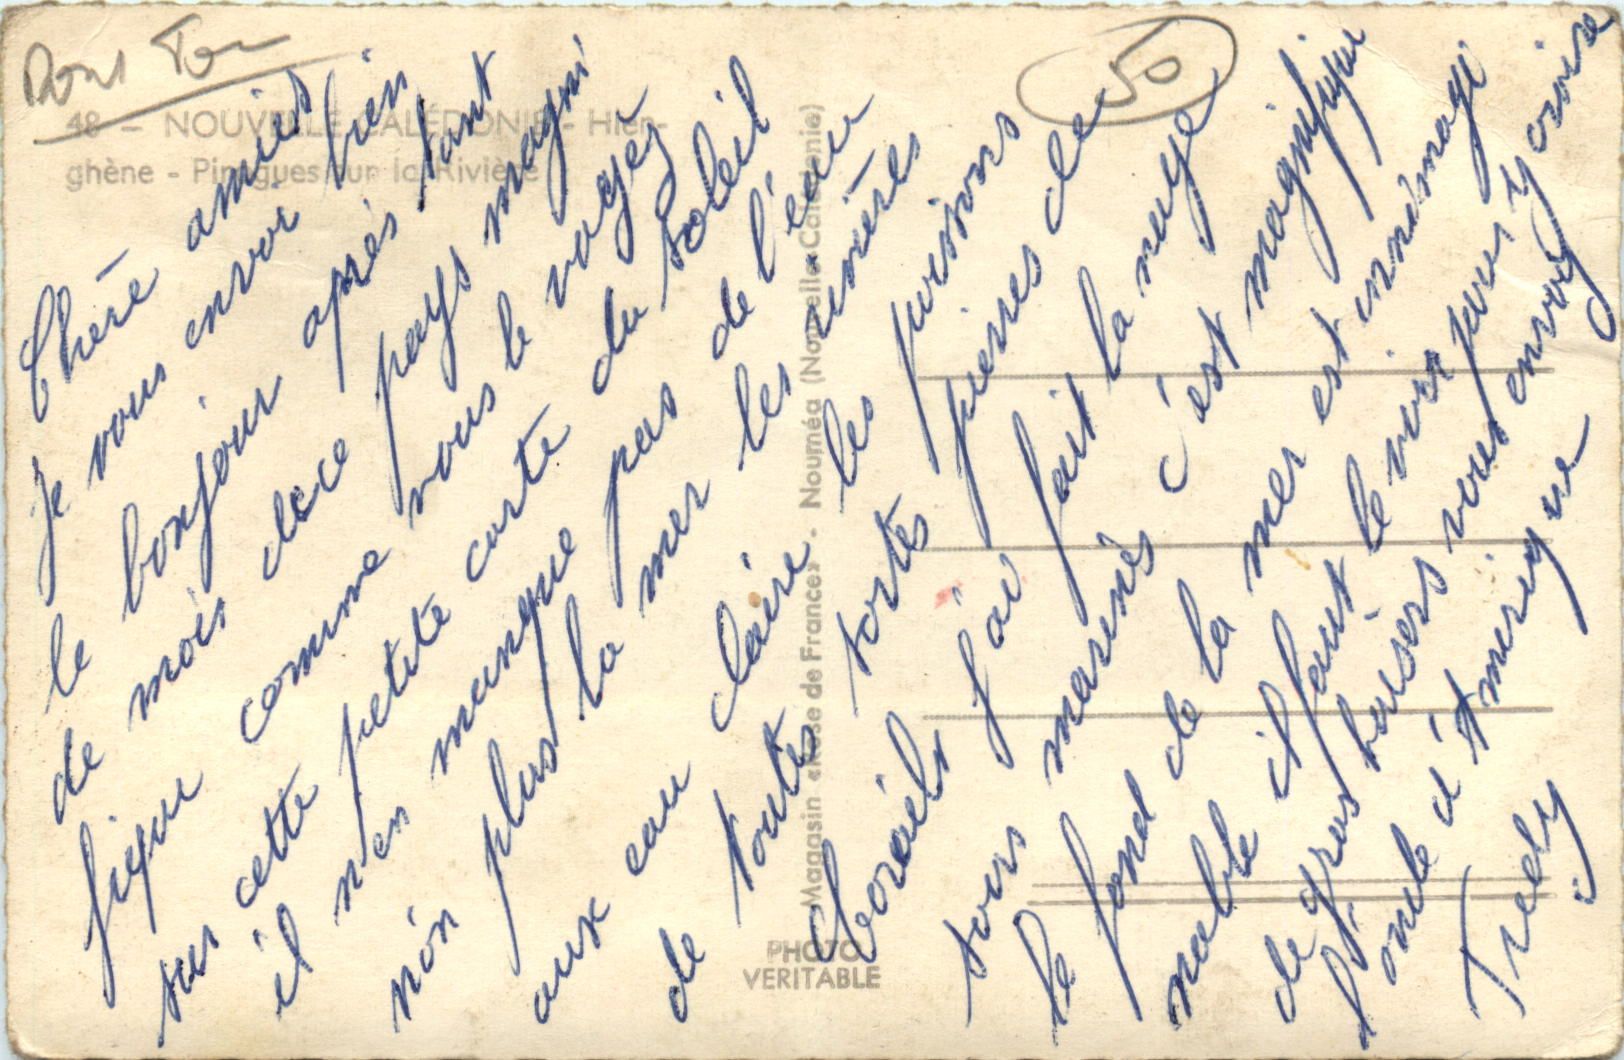 50
48 – NOUVELLE CALÉDONIE - Hien-
ghène - Pirogues sur la Rivière
Magasin «Rose de France» - Nouméa (Nouvelle-Calédonie)
PHOTO
VERITABLE
Chère amies
Je vous envoi bien
le bonjour après tant
de mois dece pays magni
fiqu comme vous le voyez
sur cette petite carte du soleil
il n'en manque pas de l'eau
non plus la mer les rivières
aux eau claire les poissons
de toutes sortes pierres de
Coraile j'ai fait la nage
sous marines c'est magnifique
le fond de la mer est innimagi
nable il faut le voir pour y croire
de gros baisers vous envoy
l'oncle d'Amerique
Fredy